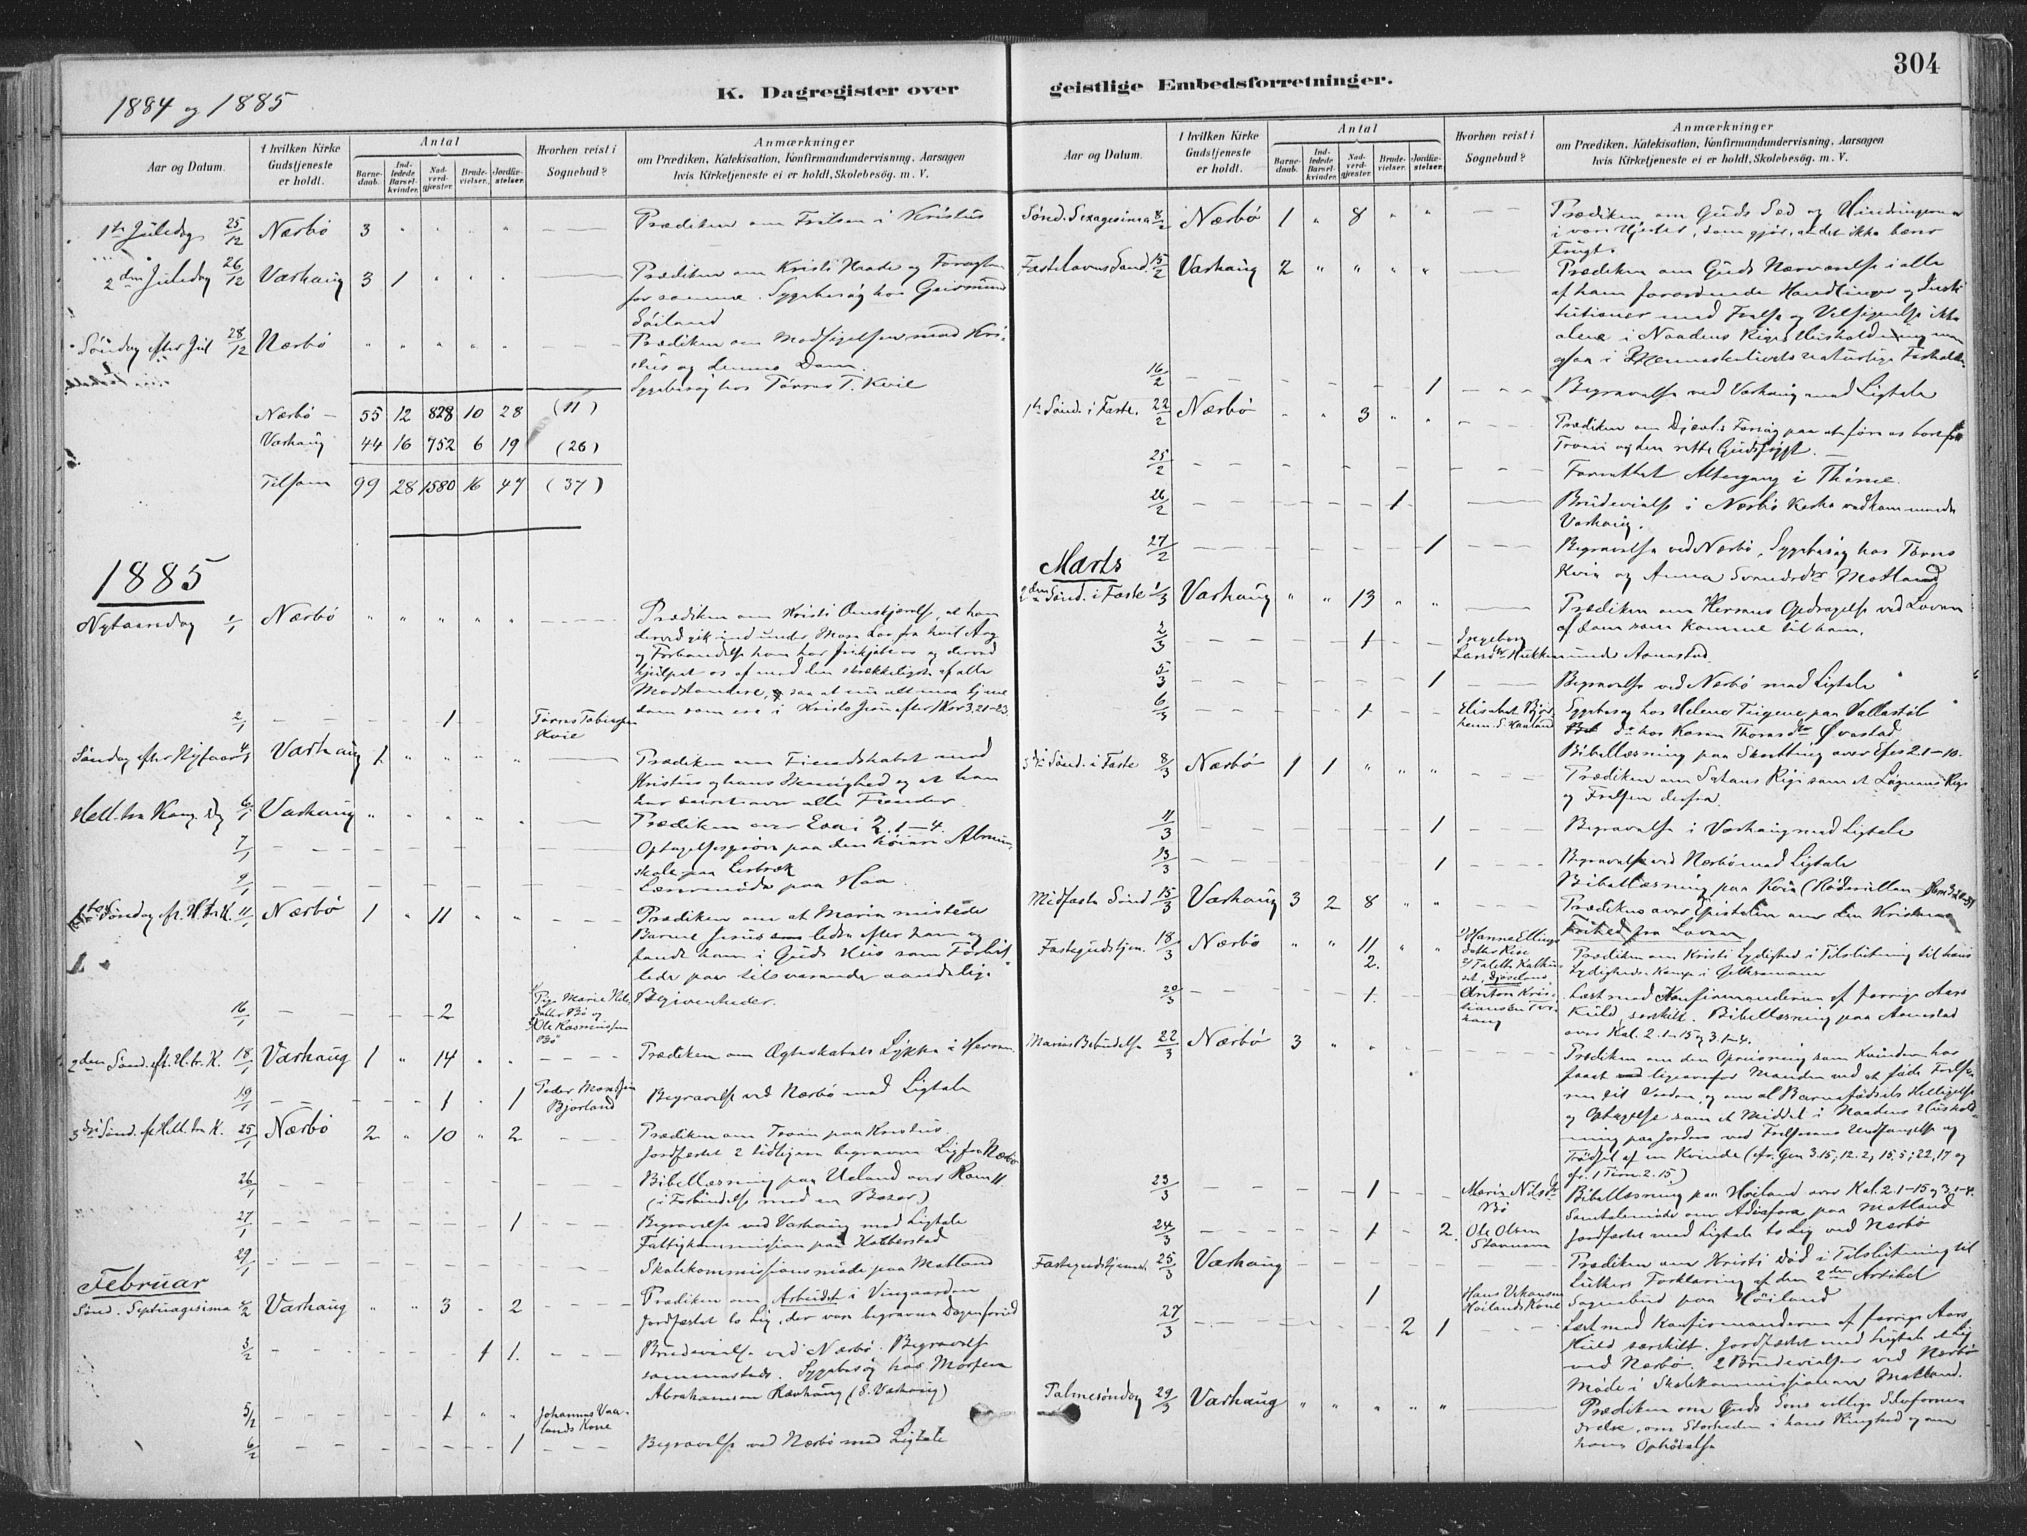 304
K. Dagregister over geistlige Embedsforretninger.
1884 og 1885
Aar og Datum.
I hvilken Kirke Gudstjeneste er holdt.
Antal
Barnedaab.
Indledede Barselkvinder.
Nadverdgjæster.
Brudevielser.
Jordfæstelser.
Hvorhen reist i Sognebud?
Anmærkninger
om Prædiken, Katekisation, Konfirmandundervisning, Aarsagen
hvis Kirketjeneste ei er holdt, Skolebesøg. m. V.
1ste Juledag 25/12 Nærbø 3 " " " " Prædiken om Frelsen i Kristus
2den Juledag 26/12 Varhaug 3 1 " " " Prædiken om Kristi Naade og
for samme. Sygebesøg hos
Søiland
Søndag efter Jul 28/12 Nærbø " " " " " Prædiken om Modsigelsen mod Kri-
stus og dennes Dom.
Sygebesøg hos Tørres T. Kvie
Nærbø – 55 12 828 10 28 (11)
Varhaug 44 16 752 6 19 (26)
Tilsam 99 28 1580 16 47 (37)
1885
Nytaarsdag 1/1 Nærbø " " " " " Prædiken om Kristi Omskjærelse, at han
derved gik ind under Mose Lov
og Forbandelse
Modstandere,
som ere i Kristo Jesu efter 1 Kor 3, 21-23
2/1 1 Tørres Tobiassen
Kvie
Søndag efter Nytaar 4/1 Varhaug 1 " " " " Prædiken om Fiendskabet mod
Kristus og hans Menighed og at han
har seiret over alle Fiender.
Hell. tre Kong. Dg 6/1 Varhaug " " " " " Prædiken over Esai 2. 1-4.
7/1 Optagelsesprøve paa den høiere Almue-
skole paa
9/1 Lærermøde paa Haa.
1ste Søndag ef. H. tr. K. 11/1 Nærbø 1 " 11 " " Prædiken om at Maria mistede
Barnet Jesus ledte efter ham og
fandt ham i Guds Hus som Forbil-
leder paa tilsvarende aandelige
Begivenheder.
16/1 2 Pige Marie Nils
datter Bø og
Ole Rasmussen
Bø
2den Sønd. ft. H. tr. K. 18/1 Varhaug 1 " 14 " " Prædiken om Ægteskabets Lykke i Herren.
19/1 1 1 Peder Mons
Bjorland
Begravelse ved Nærbø med Ligtale
3die Sønd. ef Hell. tre K. 25/1 Nærbø 2 " 10 " 2 Prædiken om Troen paa Kristus.
Jordfæstet 2 tidligere begravne Lig fra Nærbø
26/1 Bibellæsning paa Ueland over Rom 11
(i Forbindelse med en Basar)
27/1 1 Begravelse ved Varhaug med Ligtale
Fattigkommission paa Hobberstad
29/1 Skolekommissionsmøde paa Motland
Februar
Sønd. Septuagesima 1/2 Varhaug " " 3 " 2 Prædiken om Arbeidet i Vingaarden
Jordfæstet to Lig, der vare begravne Dagen forud
3/2 1 1 Brudevielse ved Nærbø. Begravelse
sammesteds. Sygebesøg hos Morten
Abrahamsen Rævhaug (S. Varhaug)
5/2 1 " " Johannes Vaa-
lands Kone
6/2 1 Begravelse ved Nærbø med Ligtale
Aar og Datum.
I hvilken Kirke Gudstjeneste er holdt.
Antal
Barnedaab.
Indledede Barselkvinder.
Nadverdgjæster.
Brudevielser.
Jordfæstelser.
Hvorhen reist i Sognebud?
Anmærkninger
om Prædiken, Katekisation, Konfirmandundervisning, Aarsagen
hvis Kirketjeneste ei er holdt, Skolebesøg. m. V.
Sønd. Sexagesima 8/2 Nærbø 1 " 8 " " Prædiken om Guds Sæd og Hindringerne
i vore Hjerter, som gjør, at det ikke bærer
Frugt.
Fastelavns Sønd. 15/2 Varhaug 2 " " " " Prædiken om Guds Nærværelse i alle
af ham forordnede Handlinger og Insti
tutioner med Frelse og Velsignelse ikke
alene i Naadens Riges Husholdning men
ogsaa i Menneskelivets naturlige Forholde.
16/2 1 Begravelse ved Varhaug med Ligtale
1ste Sønd. i Faste. 22/2 Nærbø " " 3 " " Prædiken om Djævls Forsøg paa at føre os bort fra
Troen og den rette Gudsfrygt.
25/2 Forrettet Altergang i Thime.
26/2 1 Brudevielse i Nærbø Kirke vedkommende
Varhaug.
27/2 1 Begravelse ved Nærbø. Sygebesøg hos Tørres
Kvie og Anna Motland
Marts
2den Sønd. i Faste 1/3 Varhaug " " 13 " " Prædiken om Herrens Opdragelse ved Loven
af dem som komme til ham.
2/3 1 Ingeborg
Aanestad.
5/3 1 Begravelse ved Nærbø med Ligtale
6/3 1 Elisabet Bjor
heim S. Haaland
Sygebesøg hos Helene paa
do hos Karen Thomasdtr Øvestad
Bibellæsning paa over Efes 2. 1-10.
3die Sønd. i Faste 8/3 Nærbø 1 1 " " " Prædiken om Satans Rige som et Løgnens Rige
og Frelsen derfra.
11/3 1 Begravelse i Varhaug med Ligtale
13/3 1 Begravelse ved Nærbø med Ligtale
Bibellæsning paa Kvie
Midfaste Sønd 15/3 Varhaug 3 2 8 " " Prædiken over Epistelen om den Kristnes
Frihed fra Loven
Fastegudstjen. 18/3 Nærbø " " 11 " " 1) Hanne Ellings
datter Risa
2.
Prædiken om Kristi Lydighed i Tilslutning til hans
Lydigheds Kamp i Gethsemane
20/3 1. Anton Kris-
tiansen Var
haug
Læst med Konfirmanderne af forrige Aars
Kuld, særskilt. Bibellæsning paa Aanestad
over Kol. 2. 1-15 og 3. 1-4.
Marias Bebudelse 22/3 Nærbø 3 " " Prædiken om den Opreisning som Kvinden har
faaet ligeoverfor Manden ved at føde Frelse-
ren til Verden, og om Barnefødsels Helligelse
og Optagelse som et Middel i Naadens Hushold-
ning paa Jorden ved Frelserens Undfangelse og
Fødsel af en Kvinde (cfr. Gen 3. 15; 12. 2, 15. 5; 22, 17 og
cfr. 1 Tim. 2. 15)
23/3 1 Maria Nilsdtr
Bø
Bibellæsning paa Høiland over Kol. 2. 1-15 og 3. 1-4.
Samtalemøde om Adiafora paa Motland
24/3 1 2. Ole Olsen
Stavnem
Jordfæstet med Ligtale to Lig ved Nærbø
Fastegudstjeneste. 25/3 Varhaug Prædiken om Kristi Død i Tilslutning til
Luthers Forklaring af den 2den Artikel
1 Hans
Høilands Kone
Sognebud paa Høiland
27/3 2 1 Læst med Konfirmanderne af forrige Aars
Kuld særskilt. Jordfæstet med Ligtale et Lig
ved Nærbø. 2 Brudevielser ved Nærbø
Møde i Skolekommissionen Motland.
Palmesøndag 29/3 Varhaug " " " " " Prædiken om Guds Søns villige Selvforne-
drelse, om Storheden i hans Ringhed og om
hans Ophøielse